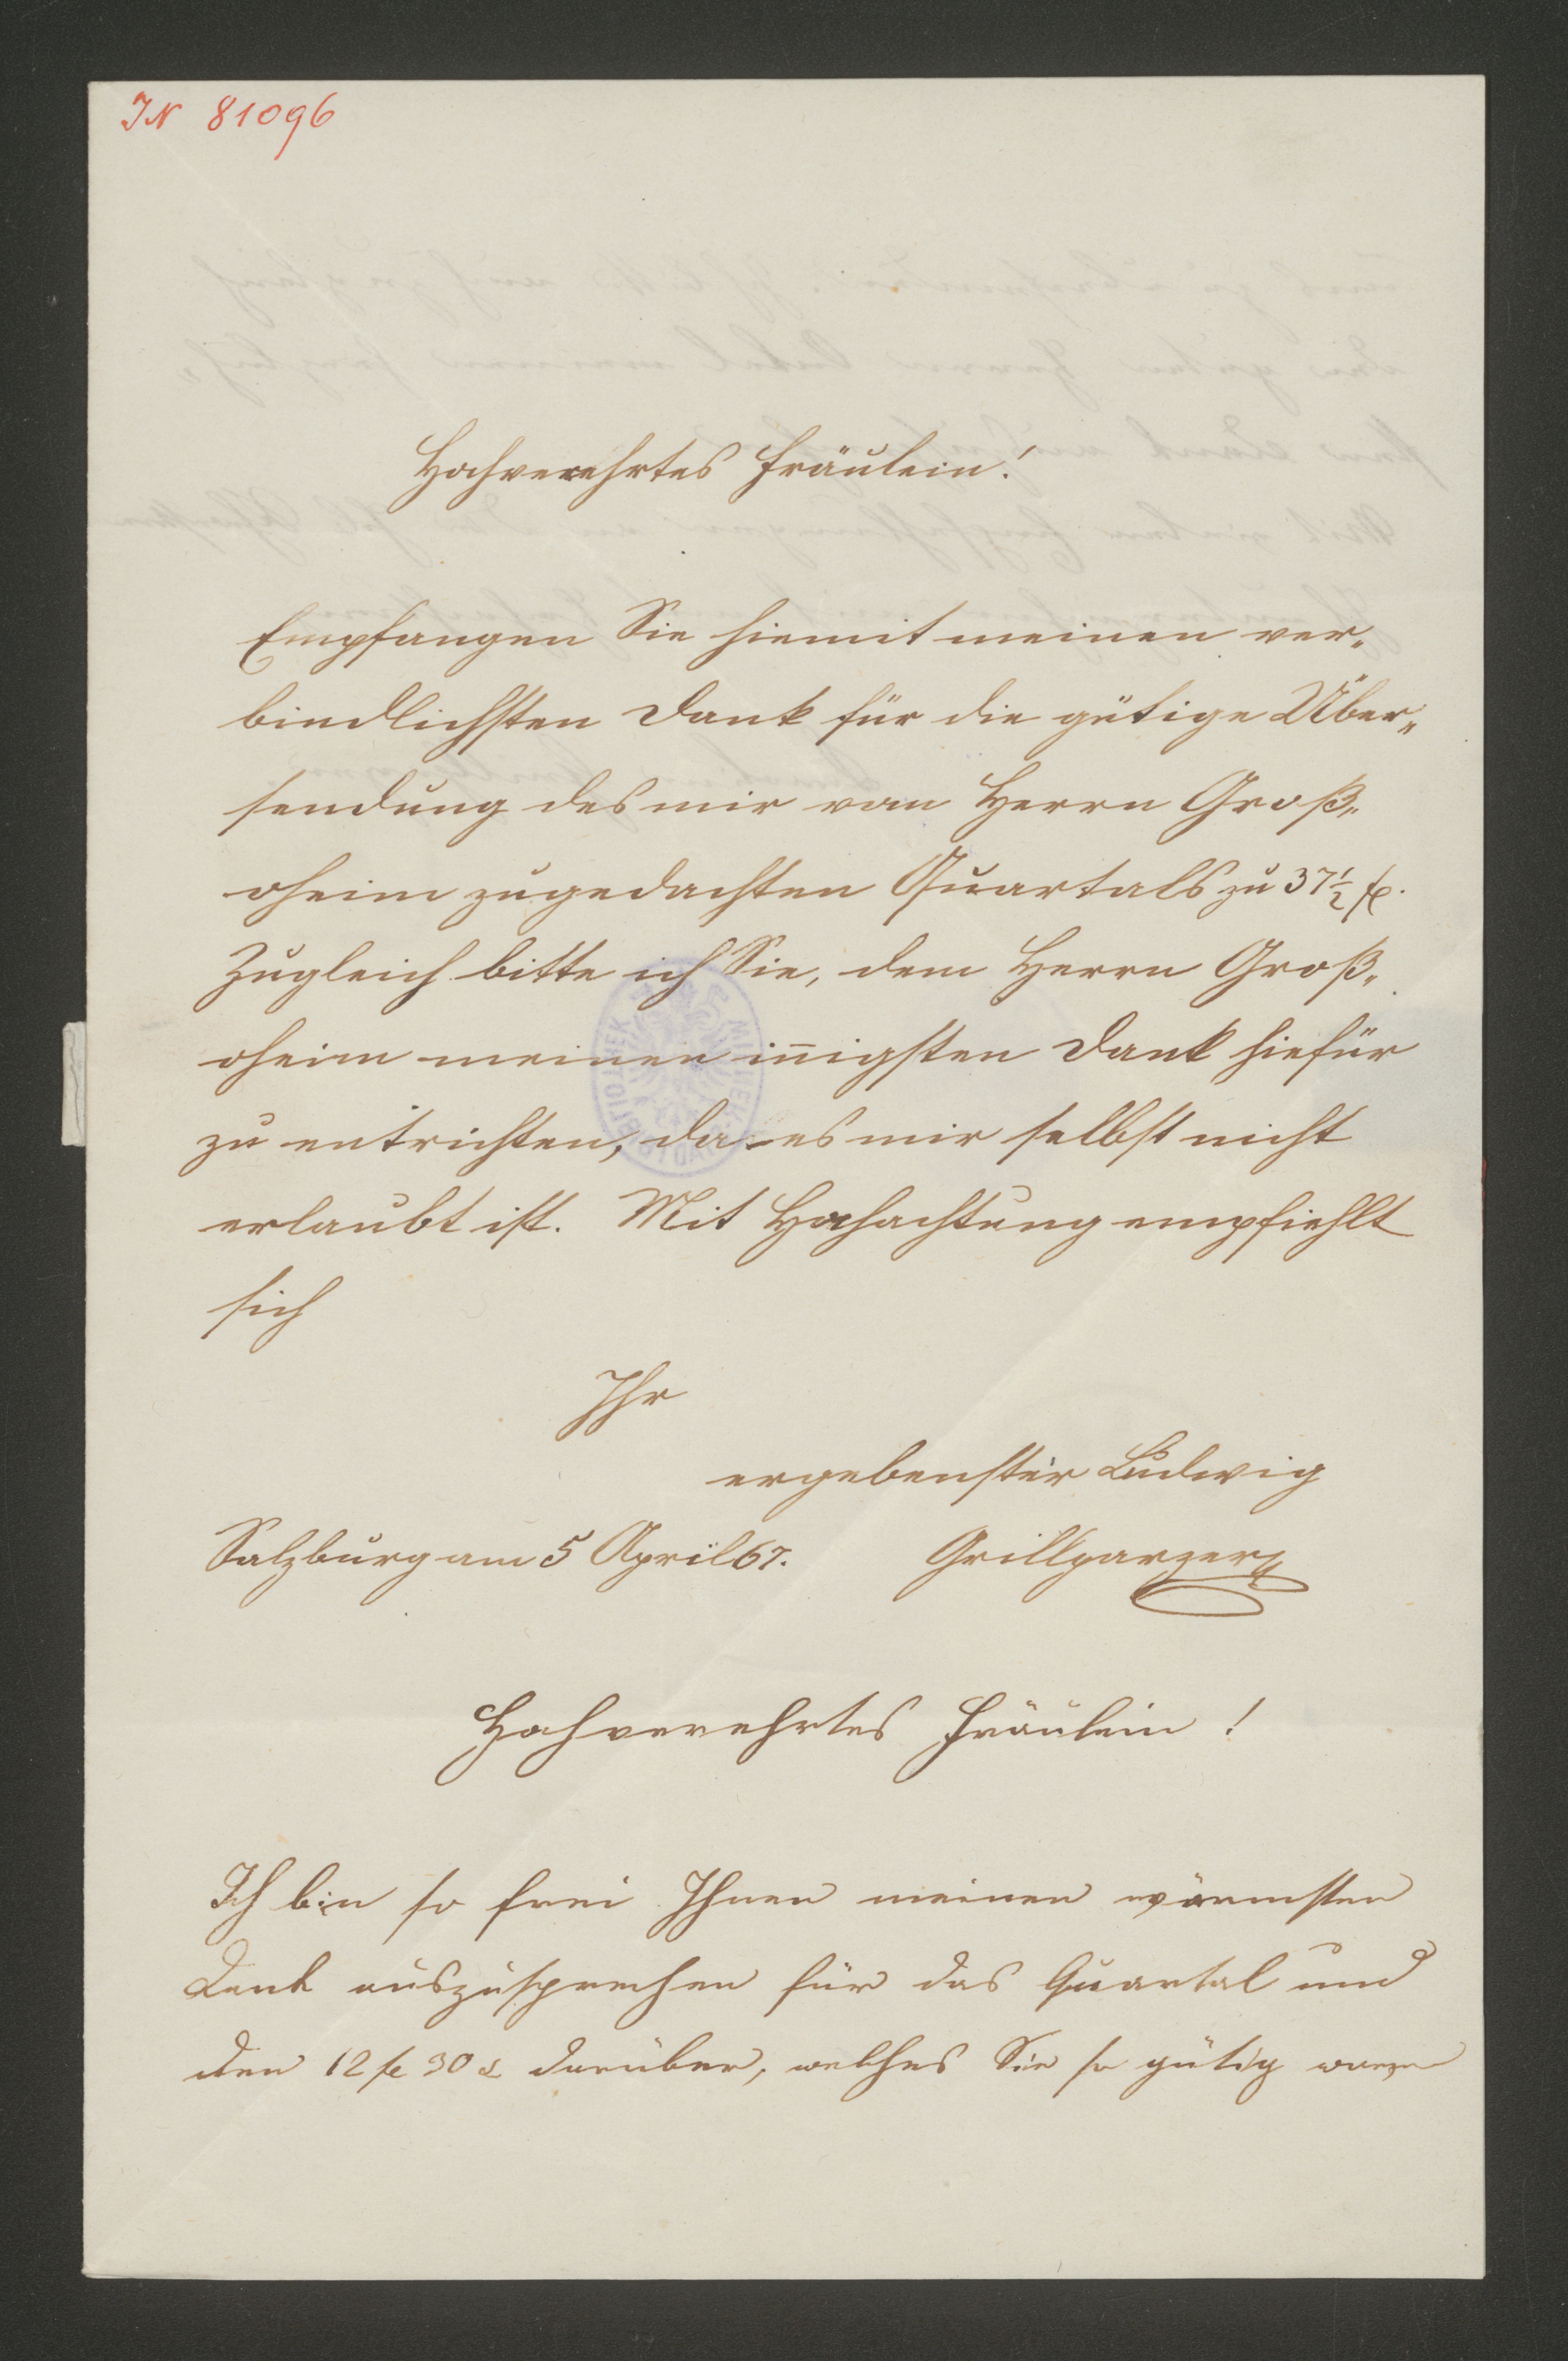 IN 81096
Hochverehrtes Fräulein!
Empfangen Sie hiemit meinen ver„
bindlichsten Dank für die gütige Über„
sendung des mir vom Herrn Groß„
oheim zugedachten Quartals zu 37½ fl.
Zugleich bitte ich Sie, dem Herrn Groß„
oheim meinen iñigsten Dank hiefür
zu entrichten, da es mir selbst nicht
erlaubt ist. Mit Hochachtung empfiehlt
sich
Ihr
ergebenster Ludwig
Salzburg am 5 April 67. Grillparzer
Hochverehrtes Fräulein!
Ich bin so frei Ihnen meinen wärmsten
Dank auszusprechen für das Quartal und
den 12 fl 30 x darüber, welches Sie so gütig waren